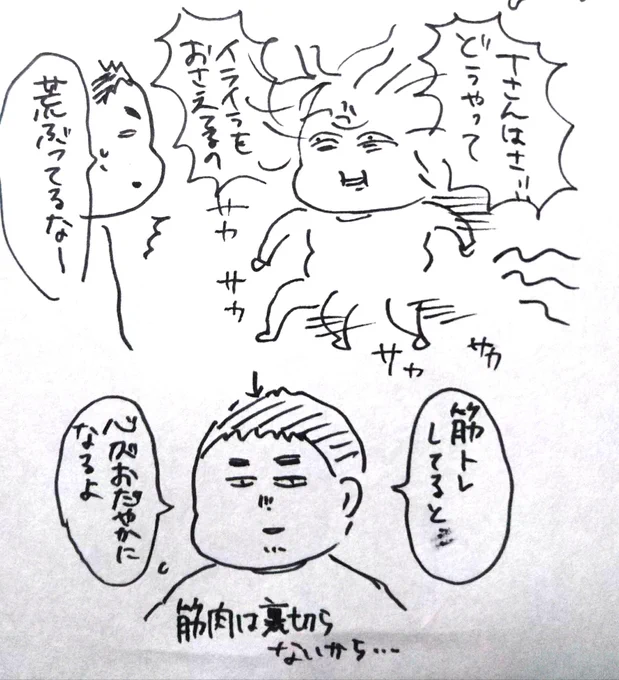 Tさんはさ…
どうやって
イライラを
おさえてるの
荒ぶってるなー
サカ
サカ
サカ
サカ
筋トレ
してると…
心がおだやかに
なるよ
筋肉は裏切ら
ないから…